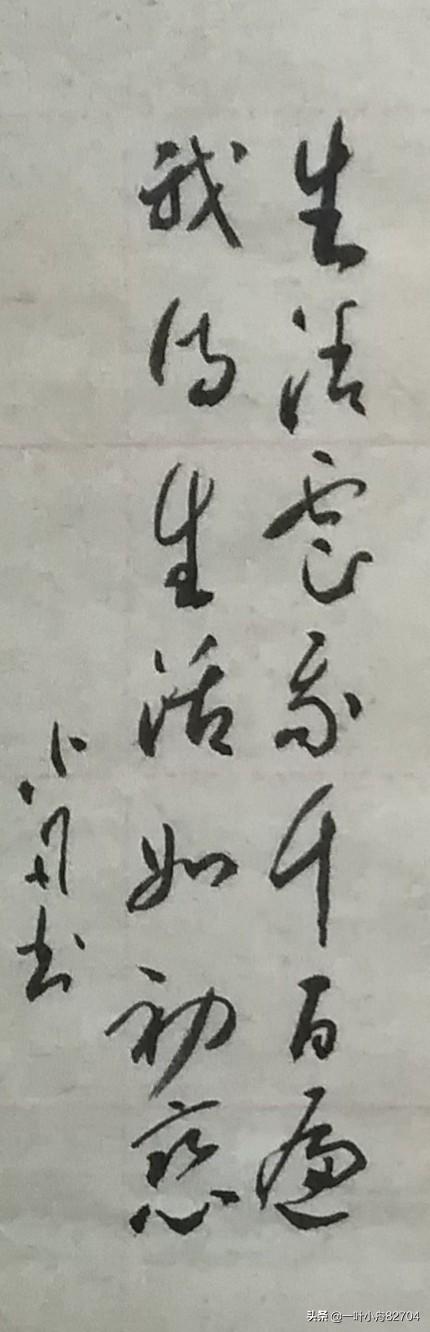 生活虐我千百遍
我待生活如初恋
小舟书
头条 @一叶小舟82704